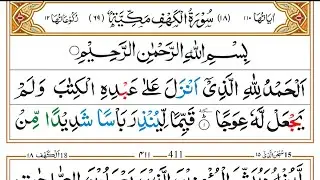 اٰیَاتُهَا ١١٠ (١٨) سُوْرَةُ الْكَهْفِ مَكِّیَّةٌ (٦٩) رُكُوْعَاتُهَا ١٢
بِسْمِ اللّٰهِ الرَّحْمٰنِ الرَّحِیْمِ
اَلْحَمْدُ لِلّٰهِ الَّذِیْۤ اَنْزَلَ عَلٰى عَبْدِهِ الْكِتٰبَ وَ لَمْ
یَجْعَلْ لَّهٗ عِوَجًا قَیِّمًا لِّیُنْذِرَ بَاْسًا شَدِیْدًا مِّنْ
الكهف ١٨ 411 ٤١١